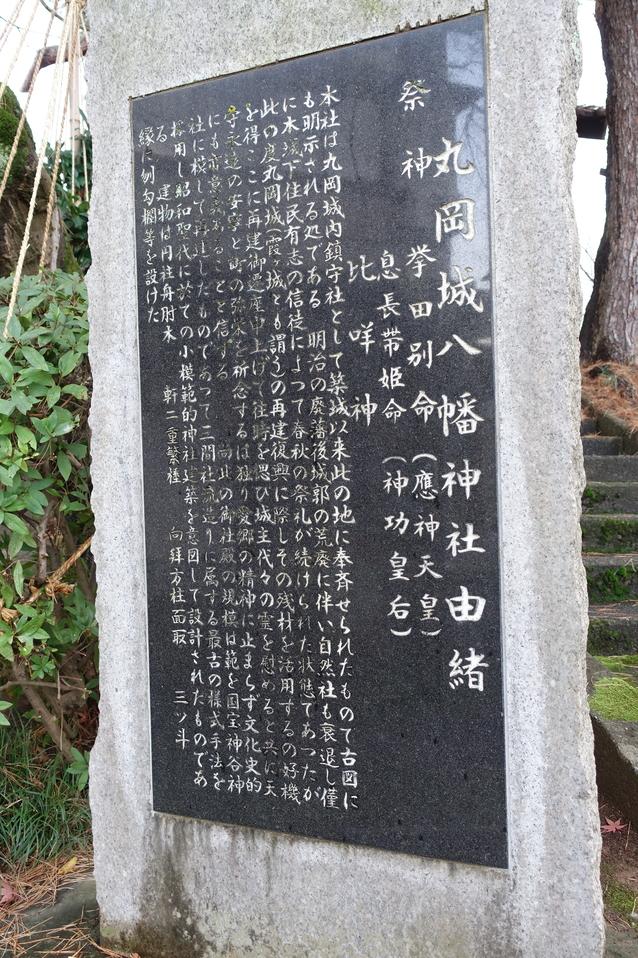 丸岡城八幡神社由緒
祭神
挙田別命（應神天皇）
息長帯姫命（神功皇后）
比咩神
本社は丸岡城内鎮守社として築城以来此の地に奉斉せられたもので古図に
も明示される処である 明治の廃藩後城郭の荒廃に伴い自然社も衰退し僅
に本城下住民有志の信徒によって春秋の祭礼が続けられた状態であつたが
此の度丸岡城(霞ヶ城とも謂う)の再建復興に際しその残材を活用するの好機
を得ここに再建御遷座申上げて往時を思び城主代々の霊を慰めると共に天
守永遠の安寧と街の弥栄を祈念するは独り愛郷の精神に止まらず文化史的
にも有意義あることと信ずる 尚此の御社殿の規模は範を国宝神谷神
社に模して再建したものであって三間社流造りに属する最古の様式手法を
採用し昭和聖代に於ての小模範的神社建築を意図して設計されたものであ
る 建物は円柱舟肘木 軒二重繁棰 向拜方柱面取 三ツ斗
縁に刎勾欄等を設けた